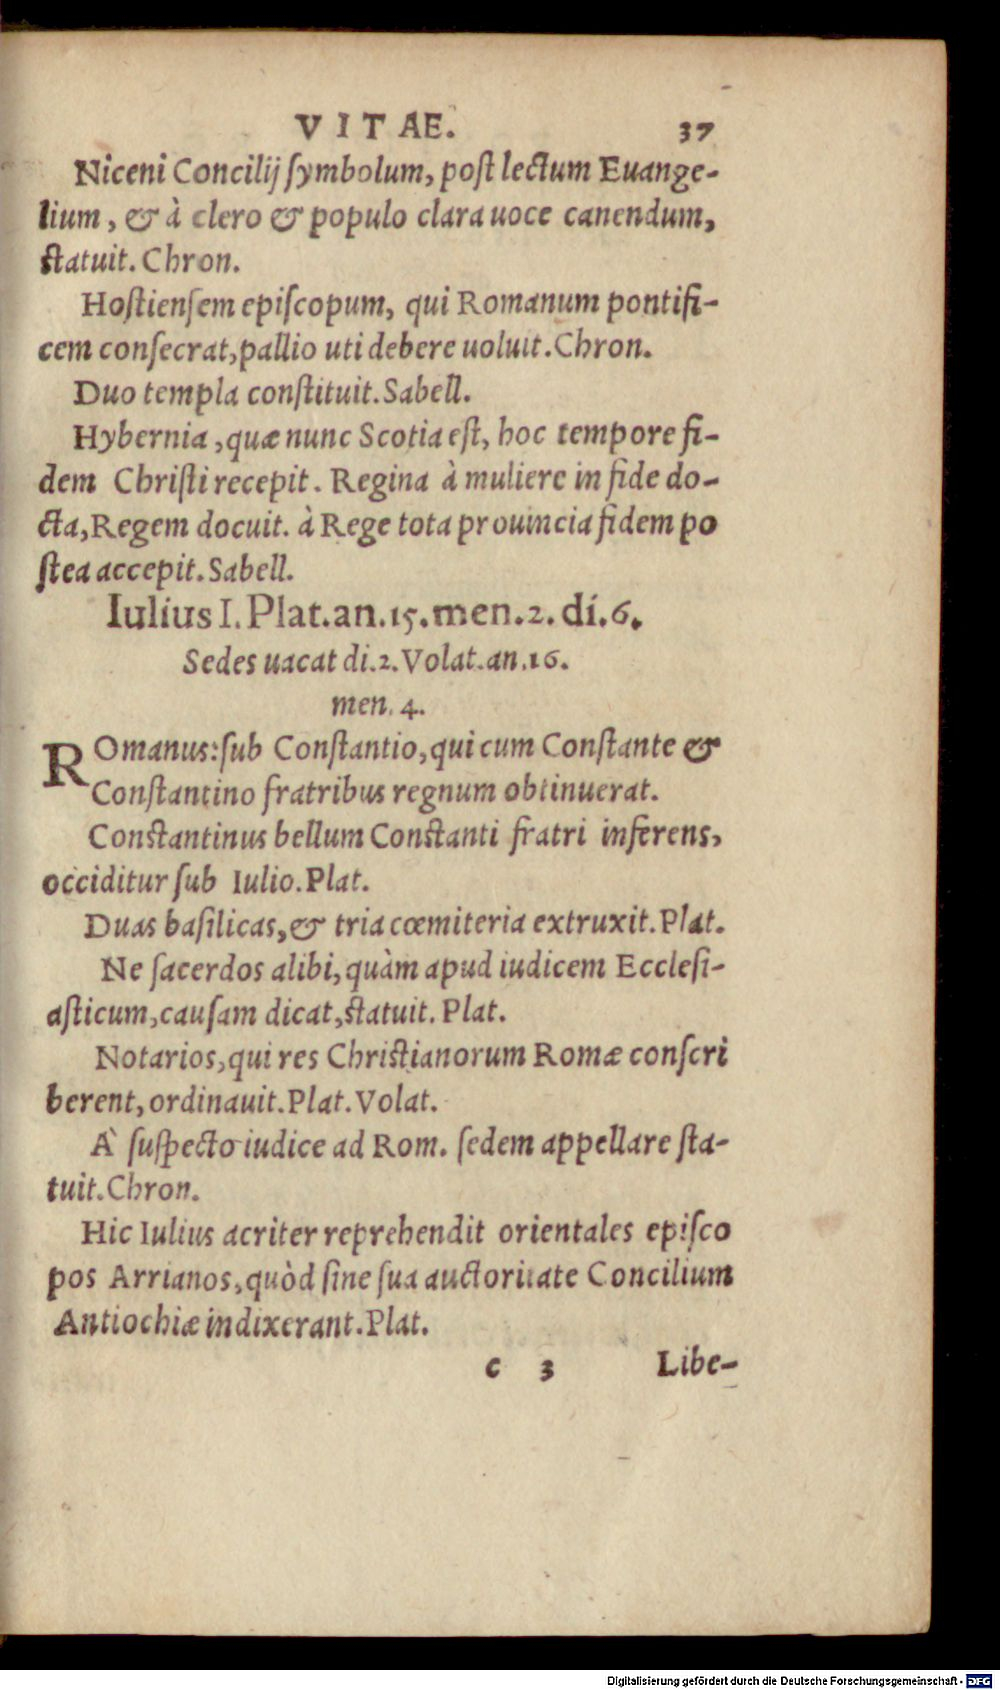 VITAE. 37
Niceni Concilij ſymbolum, poſt lectum Euange-
lium, & à clero & populo clara uoce canendum,
ſtatuit. Chron.
Hoſtienſem epiſcopum, qui Romanum pontifi-
cem conſecrat, pallio uti debere uoluit. Chron.
Duo templa conſtituit. Sabell.
Hybernia, quæ nunc Scotia eſt, hoc tempore fi-
dem Chriſti recepit. Regina à muliere in fide do-
cta, Regem docuit. à Rege tota prouincia fidem po
ſtea accepit. Sabell.
Iulius I. Plat. an. 15. men. 2. di. 6.
Sedes uacat di. 2. Volat. an. 16.
men. 4.
ROmanus: ſub Conſtantio, qui cum Conſtante &
Conſtantino fratribus regnum obtinuerat.
Conſtantinus bellum Conſtanti fratri inferens,
occiditur ſub Iulio. Plat.
Duas baſilicas, & tria cœmiteria extruxit. Plat.
Ne ſacerdos alibi, quàm apud iudicem Eccleſi-
aſticum, cauſam dicat, ſtatuit. Plat.
Notarios, qui res Chriſtianorum Romæ conſcri
berent, ordinauit. Plat. Volat.
À ſuſpecto iudice ad Rom. ſedem appellare ſta-
tuit. Chron.
Hic Iulius acriter reprehendit orientales epiſco
pos Arrianos, quòd ſine ſua auctoritate Concilium
Antiochiæ indixerant. Plat.
c 3 Libe-
Digitalisierung gefördert durch die Deutsche Forschungsgemeinschaft - DFG